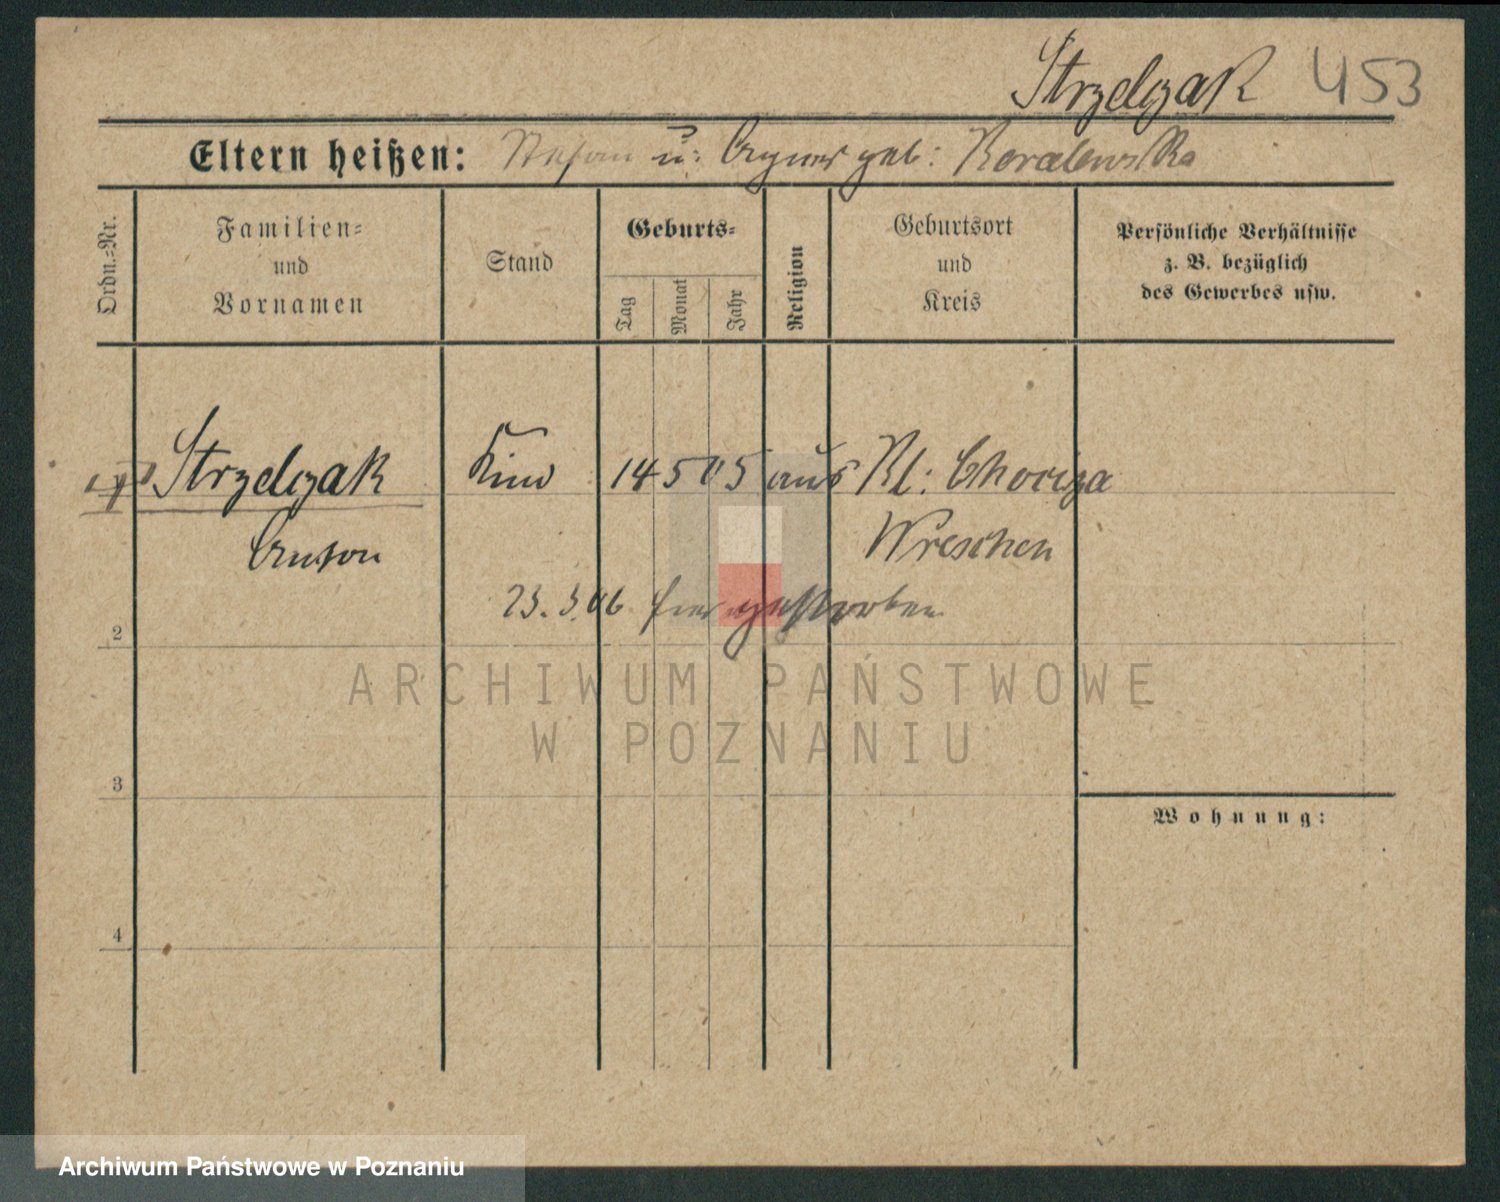 Strzelczak 453
Eltern heißen: Stefan u: Agnes geb: Koralewska
Ordn.-Nr.
Familien-
und
Vornamen
Stand
Geburts-
Tag
Monat
Jahr
Religion
Geburtsort
und
Kreis
Persönliche Verhältnisse
z. B. bezüglich
des Gewerbes usw.
Strzelczak Kind 14 5 05 aus Kl: Chociza
Anton Wreschen
23. 3. 06 hier gestorben
2
3
4
Wohnung:
ARCHIWUM PAŃSTWOWE
W POZNANIU
Archiwum Państwowe w Poznaniu